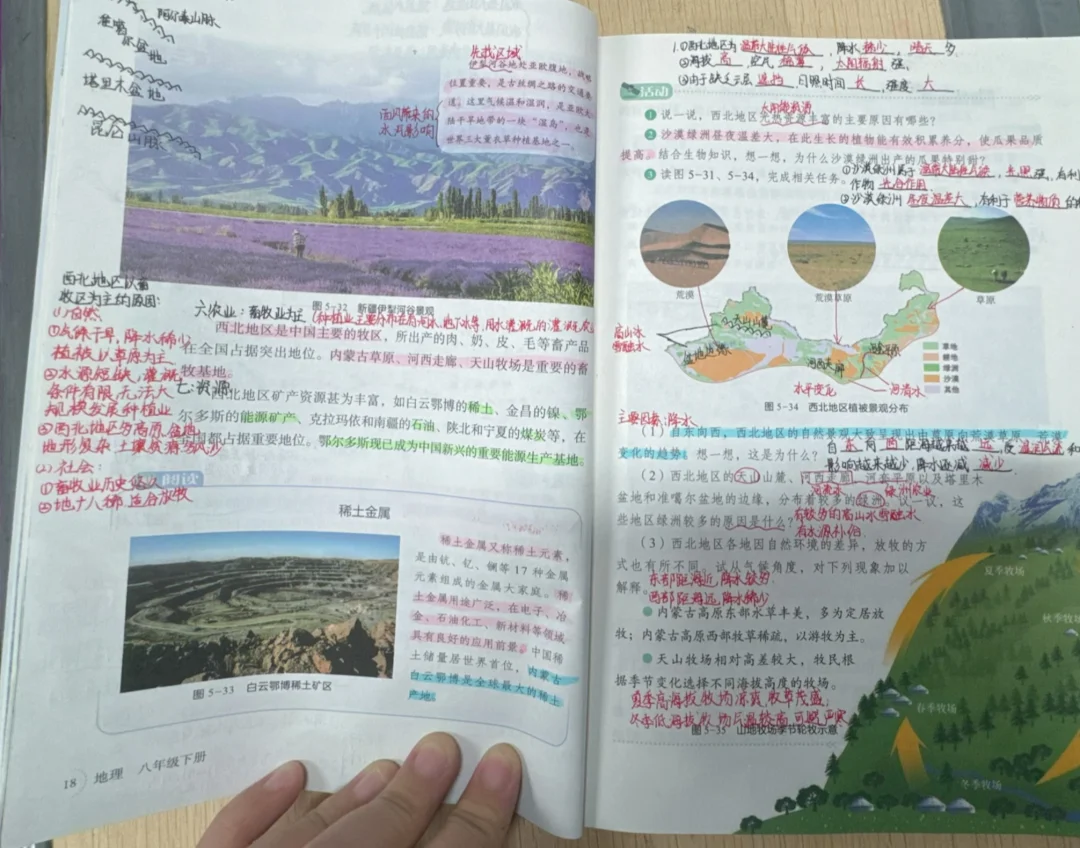 阿尔泰山脉
准噶
尔盆地
塔里木盆地
昆仑山脉
先哉区域
伊犁河谷地处亚欧腹地，战略
位置重要，是古丝绸之路的交通要
道。这里气候温和湿润，是亚欧大
陆干旱地带的一块“湿岛”，也是
世界三大薰衣草种植基地之一。
西风带来的
水汽影响
图 5-32 新疆伊犁河谷景观
西北地区以畜
牧区为主的原因：
(1)自然
①气候干旱，降水稀少
植被以草原为主
②水源短缺，灌溉
条件有限，无法大
规模发展种植业
③西北地区为高原、盆地
地形复杂
(2)社会：
①畜牧业历史悠久
②地广人稀 适合放牧
六农业：畜牧业为主
西北地区是中国主要的牧区，所出产的肉、奶、皮、毛等畜产品
在全国占据突出地位。内蒙古草原、河西走廊、天山牧场是重要的畜
牧基地。
七：资源
西北地区矿产资源甚为丰富，如白云鄂博的稀土、金昌的镍、鄂
尔多斯的能源矿产、克拉玛依和南疆的石油、陕北和宁夏的煤炭等，在
全国都占据重要地位。鄂尔多斯现已成为中国新兴的重要能源生产基地。
阅读
稀土金属
稀土金属又称稀土元素，
是由钪、钇、镧等 17 种金属
元素组成的金属大家庭。稀
土金属用途广泛，在电子、冶
金、石油化工、新材料等领域
具有良好的应用前景。中国稀
土储量居世界首位，内蒙古
白云鄂博是全球最大的稀土
产地。
图 5-33 白云鄂博稀土矿区
18 地理 八年级下册
1.①西北地区为温带大陆性气候，降水稀少，晴天多
②海拔高，空气稀薄，太阳辐射强；
③由于缺乏云层遮挡，日照时间长，强度大
活动
太阳能资源
1 说一说，西北地区光热资源丰富的主要原因有哪些？
2 沙漠绿洲昼夜温差大，在此生长的植物能有效积累养分，使瓜果品质
提高。结合生物知识，想一想，为什么沙漠绿洲出产的瓜果特别甜？
3 读图 5-31、5-34，完成相关任务。
①沙漠绿洲属于温带大陆性气候，光照强，有利
作物光合作用
②沙漠绿洲昼夜温差大，有利于营养物质的
荒漠
荒漠草原
草原
高山冰
雪融水
天山山麓
盆地边缘
河西走廊
河套平原
水平变化
河流水
草地
耕地
绿洲
沙漠
其他
图 5-34 西北地区植被景观分布
主要因素：降水
(1) 自东向西，西北地区的自然景观大致呈现出由草原向荒漠草原、荒漠
变化的趋势。想一想，这是为什么？
自东向西距海越来越远，受夏季风
影响越来越少，降水逐减减少
(2) 西北地区的天山山麓、河西走廊、河套平原以及塔里木
盆地和准噶尔盆地的边缘，分布着较多的绿洲。议一议，这
些地区绿洲较多的原因是什么？
绿洲农业
有较多的高山冰雪融水
有水源补给
(3) 西北地区各地因自然环境的差异，放牧的方
式也有所不同。试从气候角度，对下列现象加以
解释。
东部距海近，降水较多
西部距海远，降水稀少
● 内蒙古高原东部水草丰美，多为定居放
牧；内蒙古高原西部牧草稀疏，以游牧为主。
● 天山牧场相对高差较大，牧民根
据季节变化选择不同海拔高度的牧场。
夏季高海拔牧场凉爽，牧草茂盛；
冬季低海拔牧场气温较高，可避严寒
图 5-35 山地牧场季节轮牧示意
夏季牧场
秋季牧场
春季牧场
冬季牧场